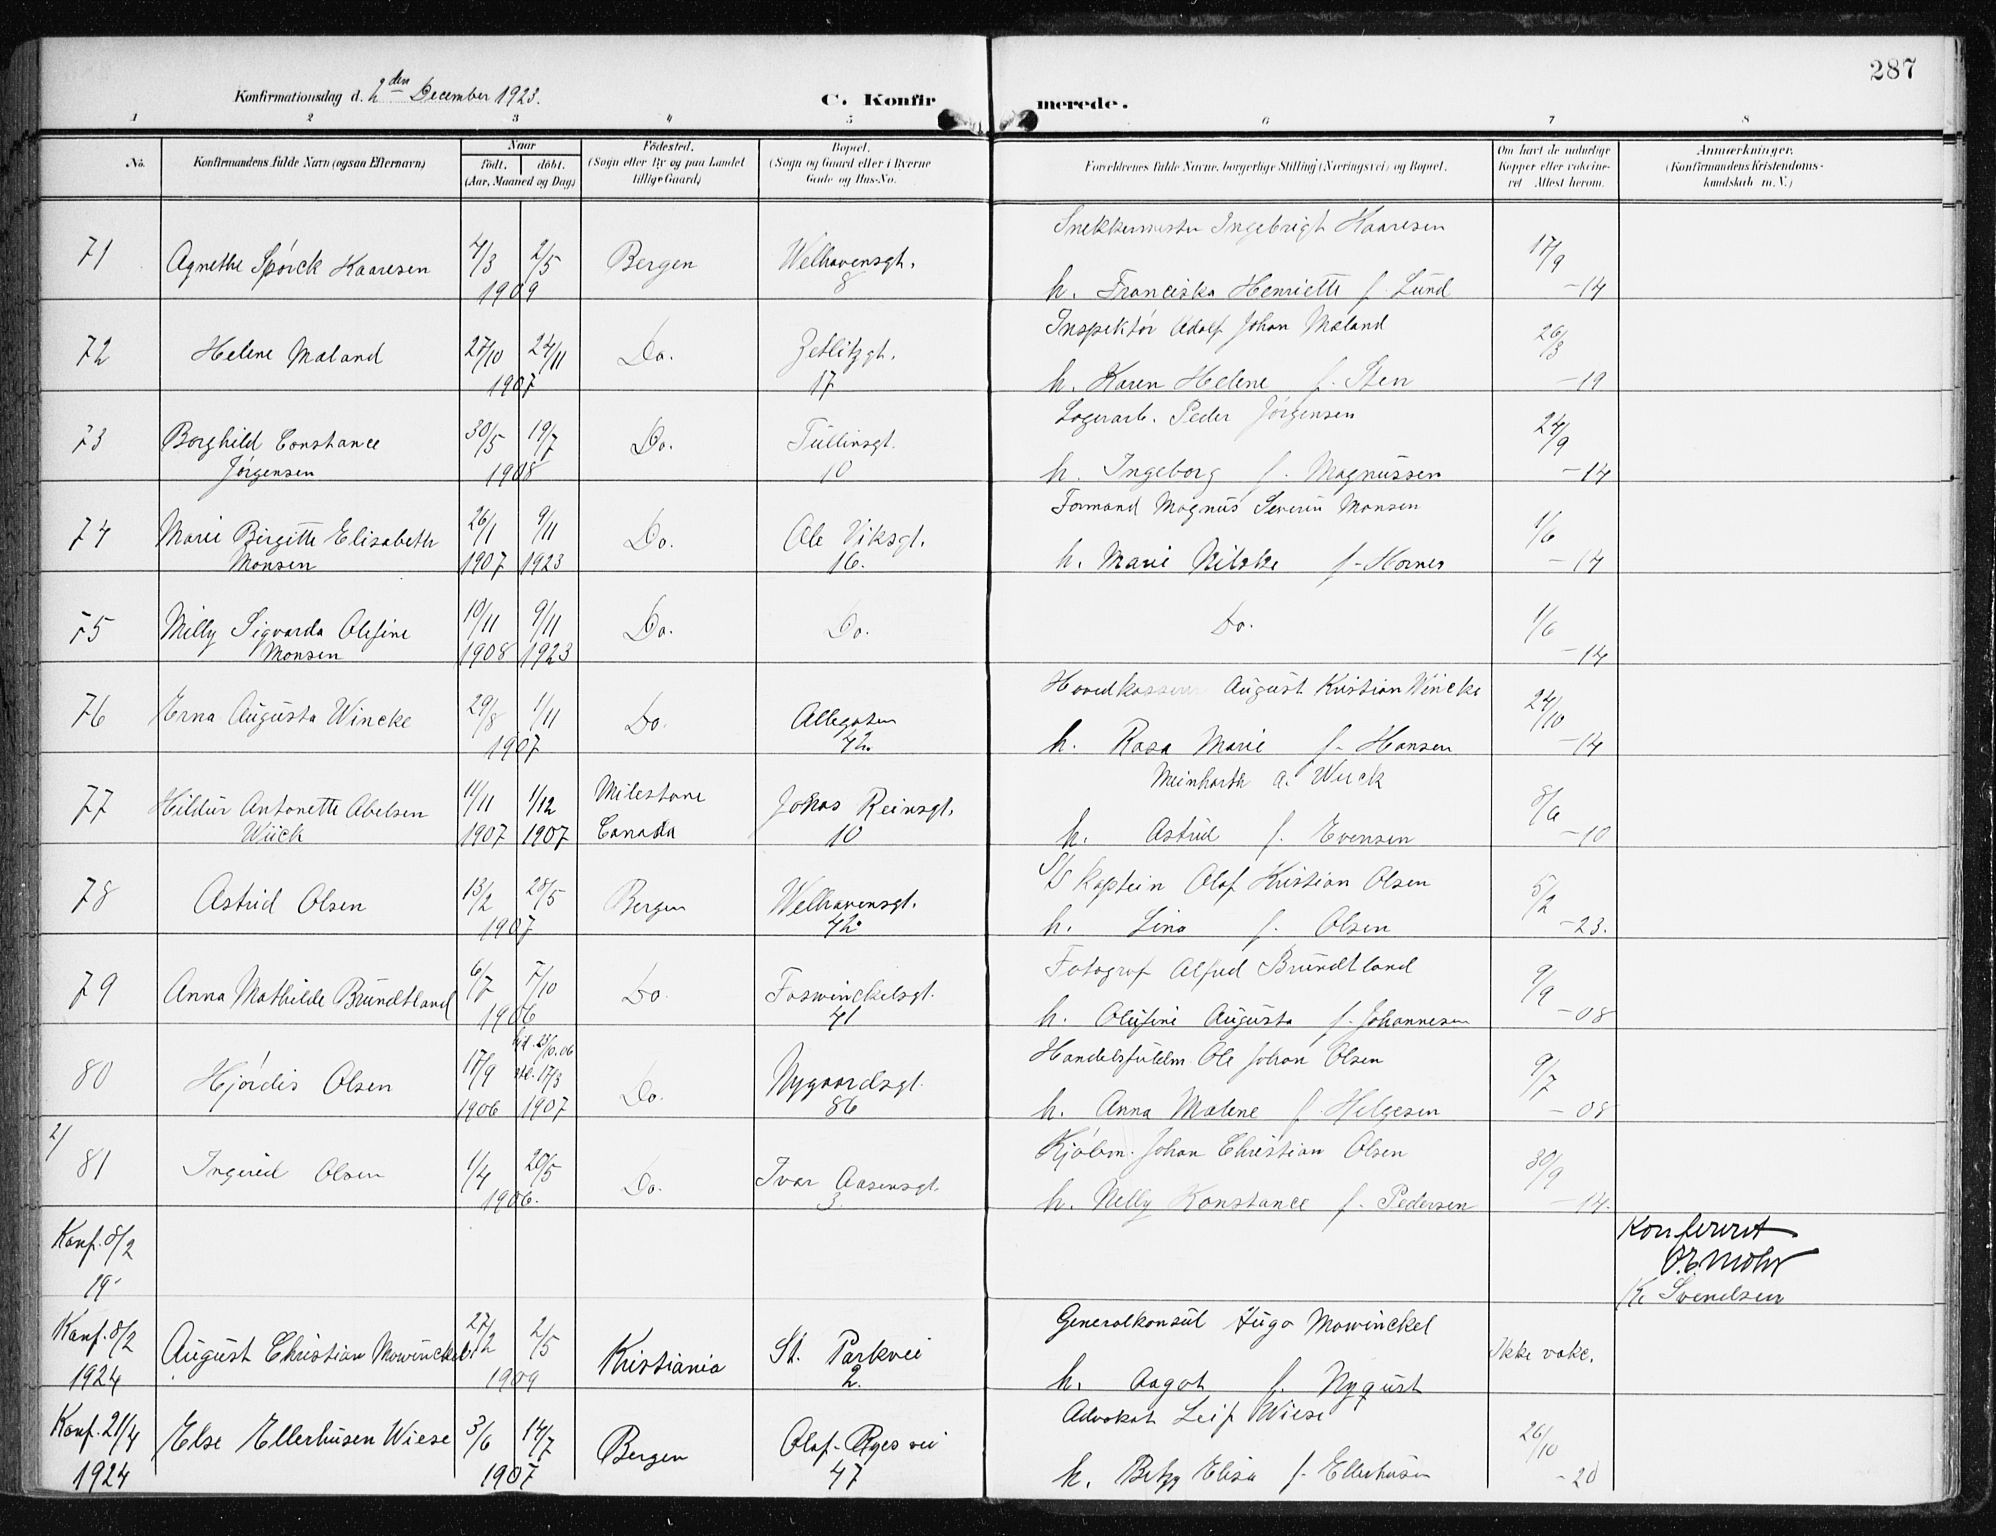 287
Konfirmationsdag d. 2den December 1923.
C. Konfirmerede.
1 2 3 4 5 6 7 8
No.
Konfirmandens fulde Navn (ogsaa Efternavn)
Naar
født. døbt.
(Aar, Maaned og Dag)
Fødested.
(Sogn eller By og paa Landet
tillige Gaard)
Bopæl.
(Sogn og Gaard eller i Byerne
Gade og Hus-No.
Forældrenes fulde Navne, borgerlige Stilling (Næringsvei) og Bopæl.
Om havt de naturlige
Kopper eller vakcine-
ret Attest herom.
Anmærkninger.
(Konfirmandens Kristendoms-
kundskab m. V.)
Snekkermester Ingebrigt Kaaresen
71 Agnethe Spörck Kaaresen 4/3 2/5 Bergen Welhavensgt. 17/9
1909 8 h. Franciska Henriette f. Lund -14
Inspektör Adolf Johan Mæland
72 Helene Mæland 27/10 24/11 Do. Zetlitzgt. 26/3
1907 17 h. Karen Helene f. Sten -19
Lagerarb. Peder Jörgensen
73 Borghild Constance 30/5 19/7 Do. Tullinsgt. 24/9
Jörgensen 1908 10 h. Ingeborg f. Magnussen -14
Formand Magnus Severin Monsen
74 Marie Birgitte Elisabeth 26/1 9/11 Do. Ole Viksgt. 1/6
Monsen 1907 1923 16. h. Marie Nilska f. Hornes -14
75 Milly Sigvarda Olefine 10/11 9/11 Do. Do. Do. 1/6
Monsen 1908 1923 -14
Hovedkasserer August Kristian Wincke
76 Erna Augusta Wincke 29/8 1/11 Do. Allegaten 24/10
1907 42. h. Rosa Marie f. Hansen -14
Meinhardt A. Wiick
77 Hildur Antonette Abelsen 11/11 1/12 Milestone Jonas Reinsgt. 8/6
Wiick 1907 1907 Canada 10 h. Astrid f. Evensen -10
S/S Kaptein Olaf Kristian Olsen
78 Astrid Olsen 13/2 28/5 Bergen Welhavensgt. 5/2
1907 42. h. Lina f. Olsen -23.
Fotograf Alfred Brundtland
79 Anna Mathilde Brundtland 6/7 7/10 Do. Foswinckelsgt. 9/9
1906 41 h. Olufine Augusta f. Johannesen -08
Handelsfuldm. Ole Johan Olsen
80 Hjördis Olsen 17/9 17/3 Do. Nygaardsgt. 9/7
1906 1907 86 h. Anna Malene f. Helgesen -08
2/
Kjöbm. Johan Christian Olsen
81 Ingrid Olsen 1/4 20/5 Do. Ivar Aasensgt. 30/9
1906. 3. h. Nelly Konstance f. Pedersen -14.
Konf. 8/2
19
Konfereret
O.E. Mohr
K. Svendsen
Generalkonsul Hugo Mowinckel
Konf. 8/2 August Christian Mowinckel 27/2 2/5 Kristiania St. Parkvei Ikke vakc.
1924 1909 2. h. Aagot f. Nyquist
Advokat Leif Wiese
Konf. 21/4 Else Ellerhusen Wiese 3/6 14/7 Bergen Olaf Ryes vei 26/10
1924 1907 47 h. Betzy Elisa f. Ellerhusen -20